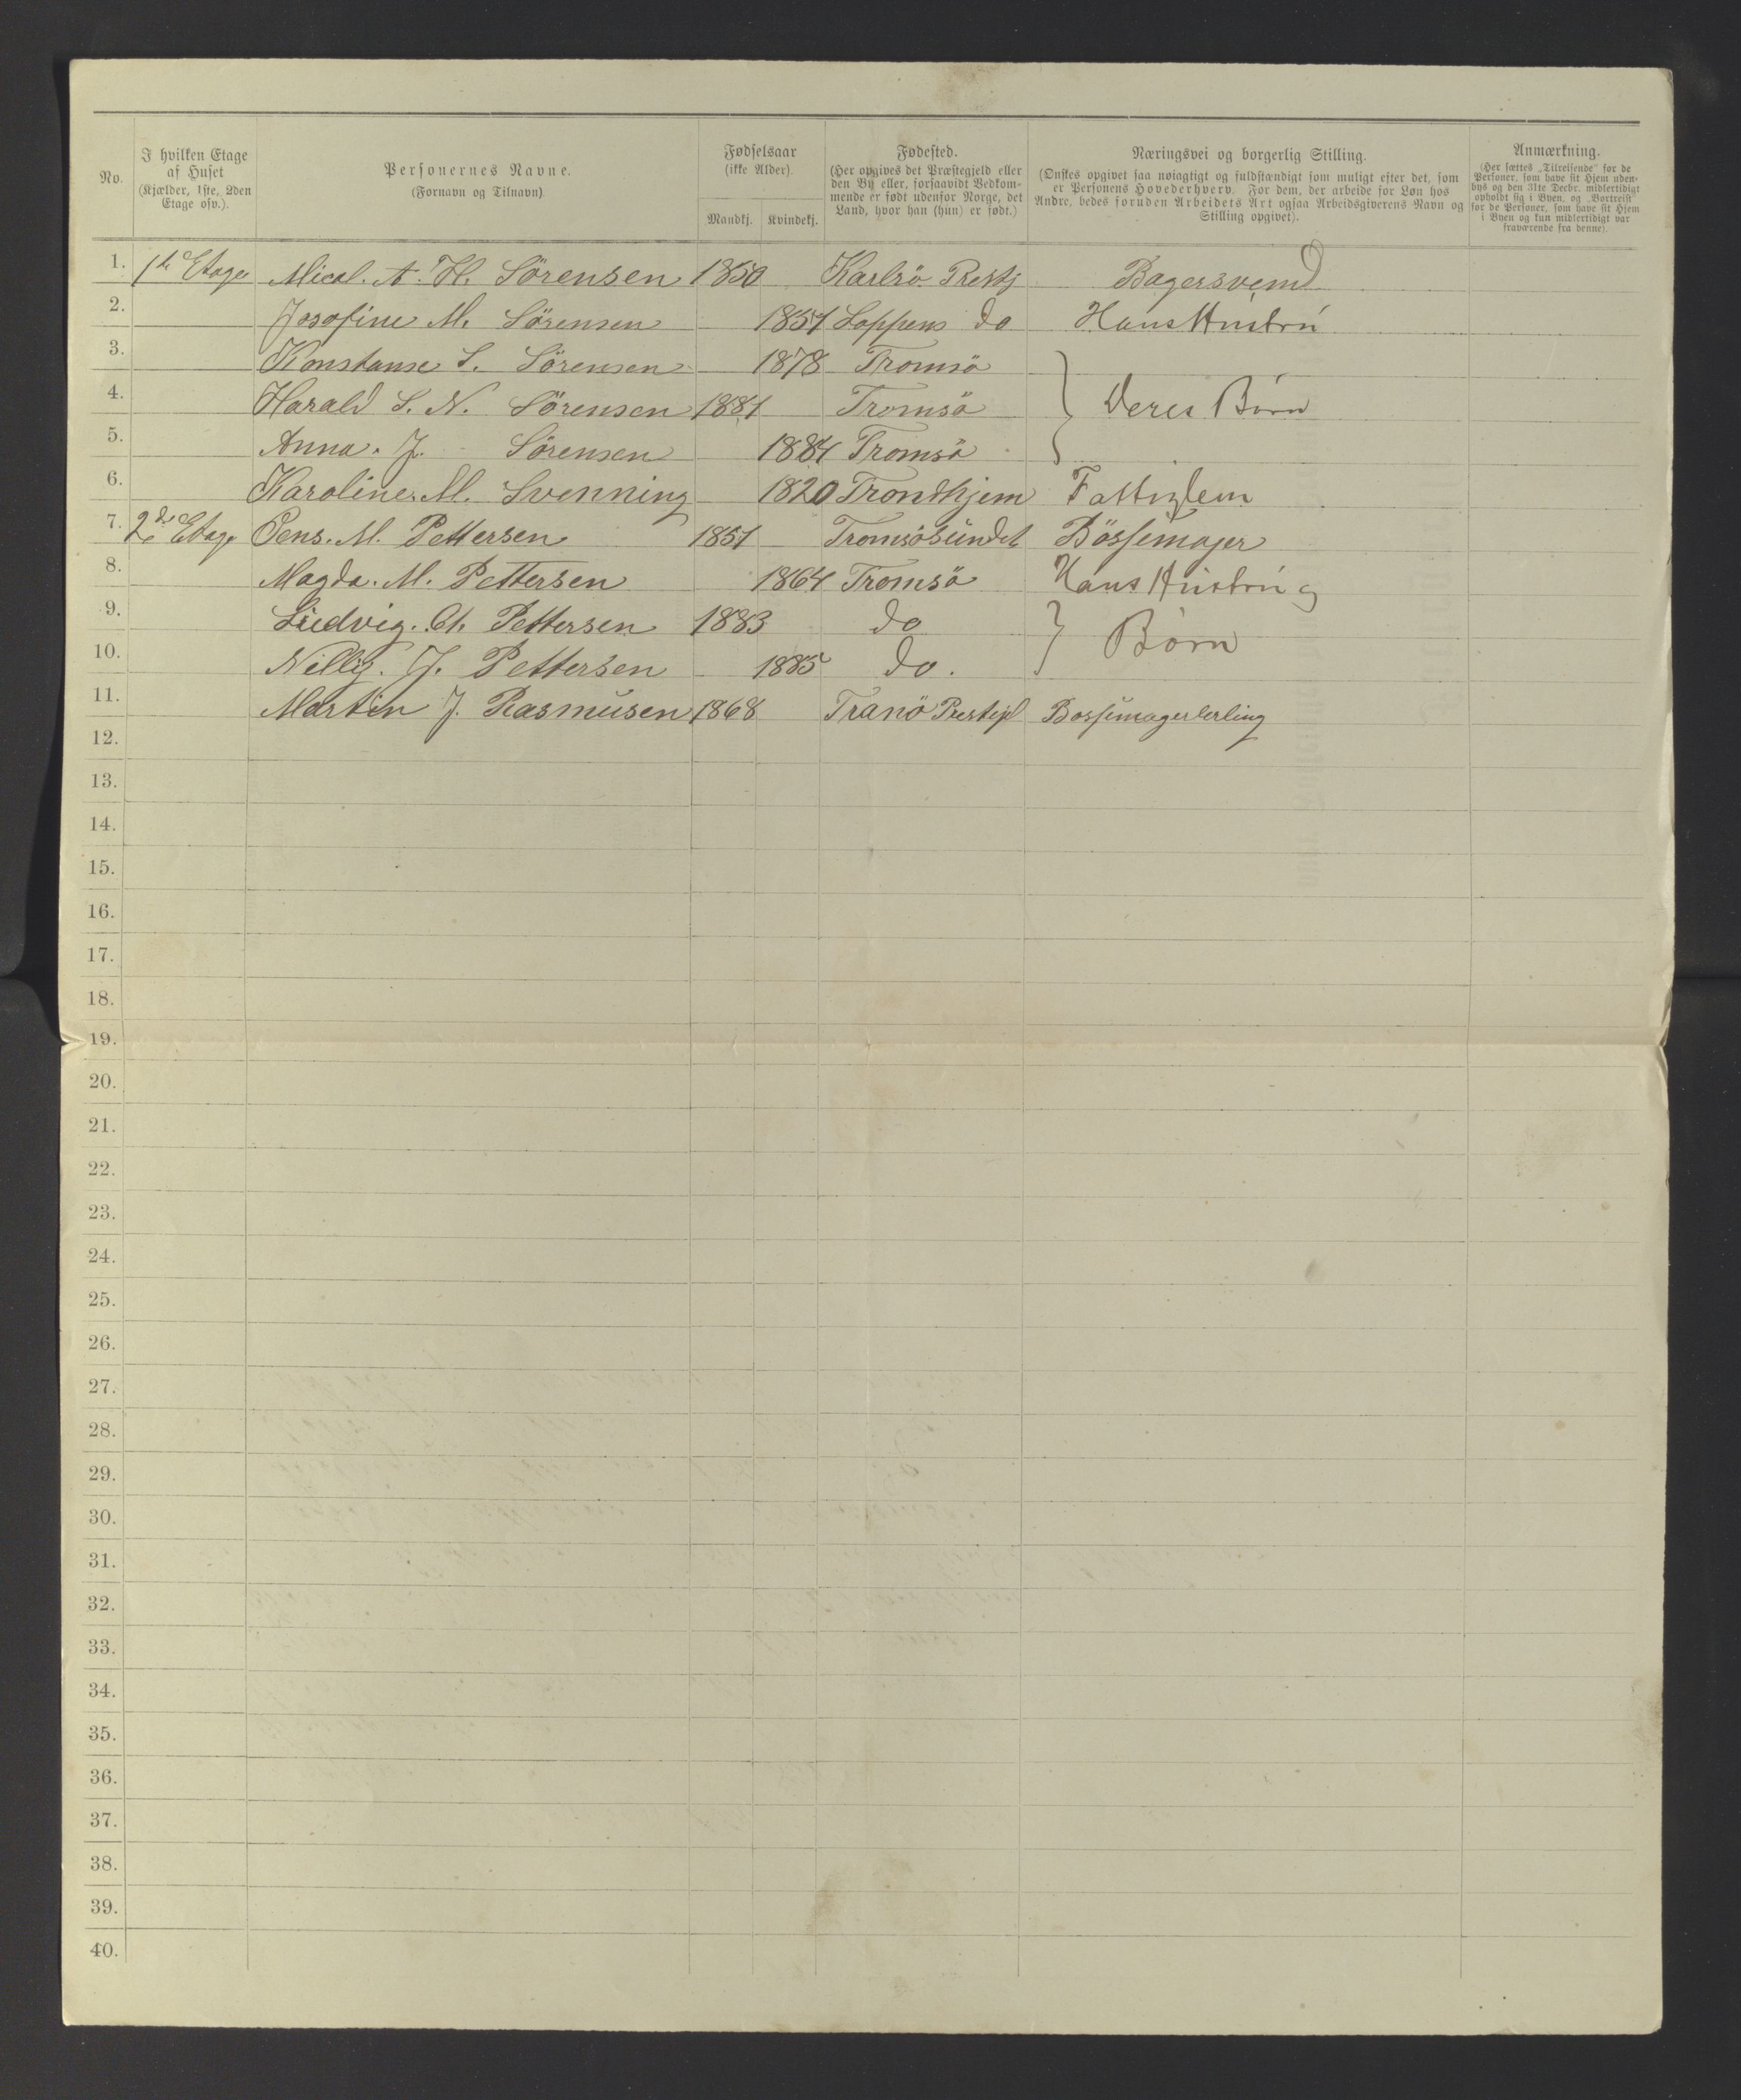 No. I hvilken Etage af Huset (Kjælder, 1ste, 2den Etage osv.). Personernes Navne. (Fornavn og Tilnavn) Fødselsaar (ikke Alder) Mandkj. Kvindekj. Fødested. (Her opgives det Præstegjeld eller den By eller, forsaavidt Vedkommende er født udenfor Norge, det Land, hvor han (hun) er født.) Næringsvei og borgerlig Stilling. (Ønskes opgivet saa nøiagtigt og fuldstændigt som muligt efter det, som er Personens Hovederhverv. For dem, der arbeide for Løn hos Andre, bedes foruden Arbeidets Art ogsaa Arbeidsgiverens Navn og Stilling opgivet). Anmærkning. (Her sættes „Tilreisende“ for de Personer, som have sit Hjem udenbys og den 31te Decbr. midlertidigt opholdt sig i Byen, og „Bortreist“ for de Personer, som have sit Hjem i Byen og kun midlertidigt var fraværende fra denne).
1. 1ste Etage Mical. A. H. Sörensen 1850 Karlsö Prestj Bagersvend
2. Josofine M. Sörensen 1857 Loppens do Hans Hustrú
3. Konstanse S. Sörensen 1878 Tromsö
4. Harald S. N. Sörensen 1881 Tromsö } Deres Börn
5. Anna. J. Sörensen 1884 Tromsö
6. Karoline. M. Svenning 1820 Trondhjem Fattiglem
7. 2den Etage Jens. M. Pettersen 1851 Tromsösundet Bössemager
8. Magda. M. Pettersen 1864 Tromsö Hans Hústrú og
9. Ludvig. A. Pettersen 1883 do } Börn
10. Nilly. J. Pettersen 1885 do.
11. Martin J. Rasmusen 1868 Tranö Prestejl Bossemagerlerling
12.
13.
14.
15.
16.
17.
18.
19.
20.
21.
22.
23.
24.
25.
26.
27.
28.
29.
30.
31.
32.
33.
34.
35.
36.
37.
38.
39.
40.